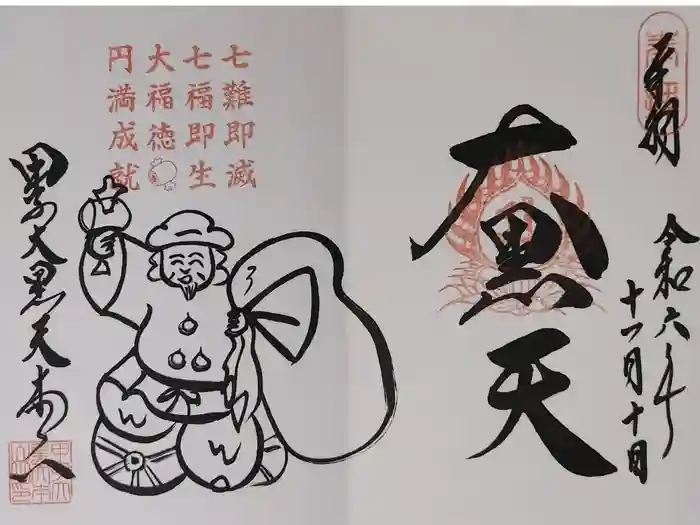 奉拝
大黒天
令和六年
十一月十日
七難即滅
七福即生
大福徳
円満成就
大黒天